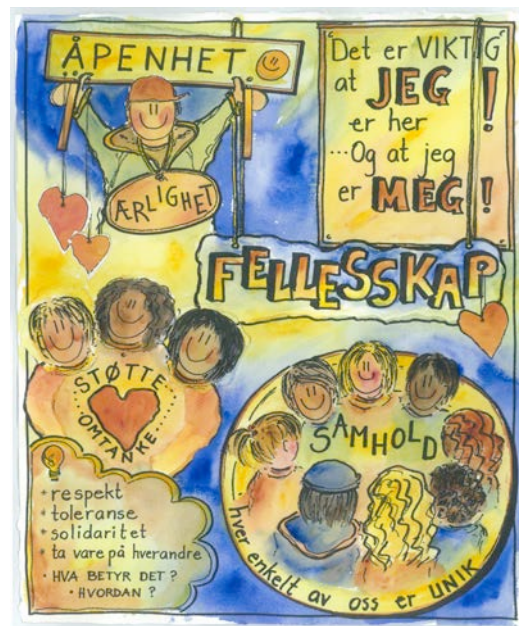 ÅPENHET
ÆRLIGHET
Det er VIKTIG
at JEG !
er her
...Og at jeg
er MEG !
FELLESSKAP
STØTTE
OMTANKE
SAMHOLD
hver enkelt av oss er UNIK
* respekt
* toleranse
* solidaritet
* ta vare på hverandre
• HVA BETYR DET ?
• HVORDAN ?